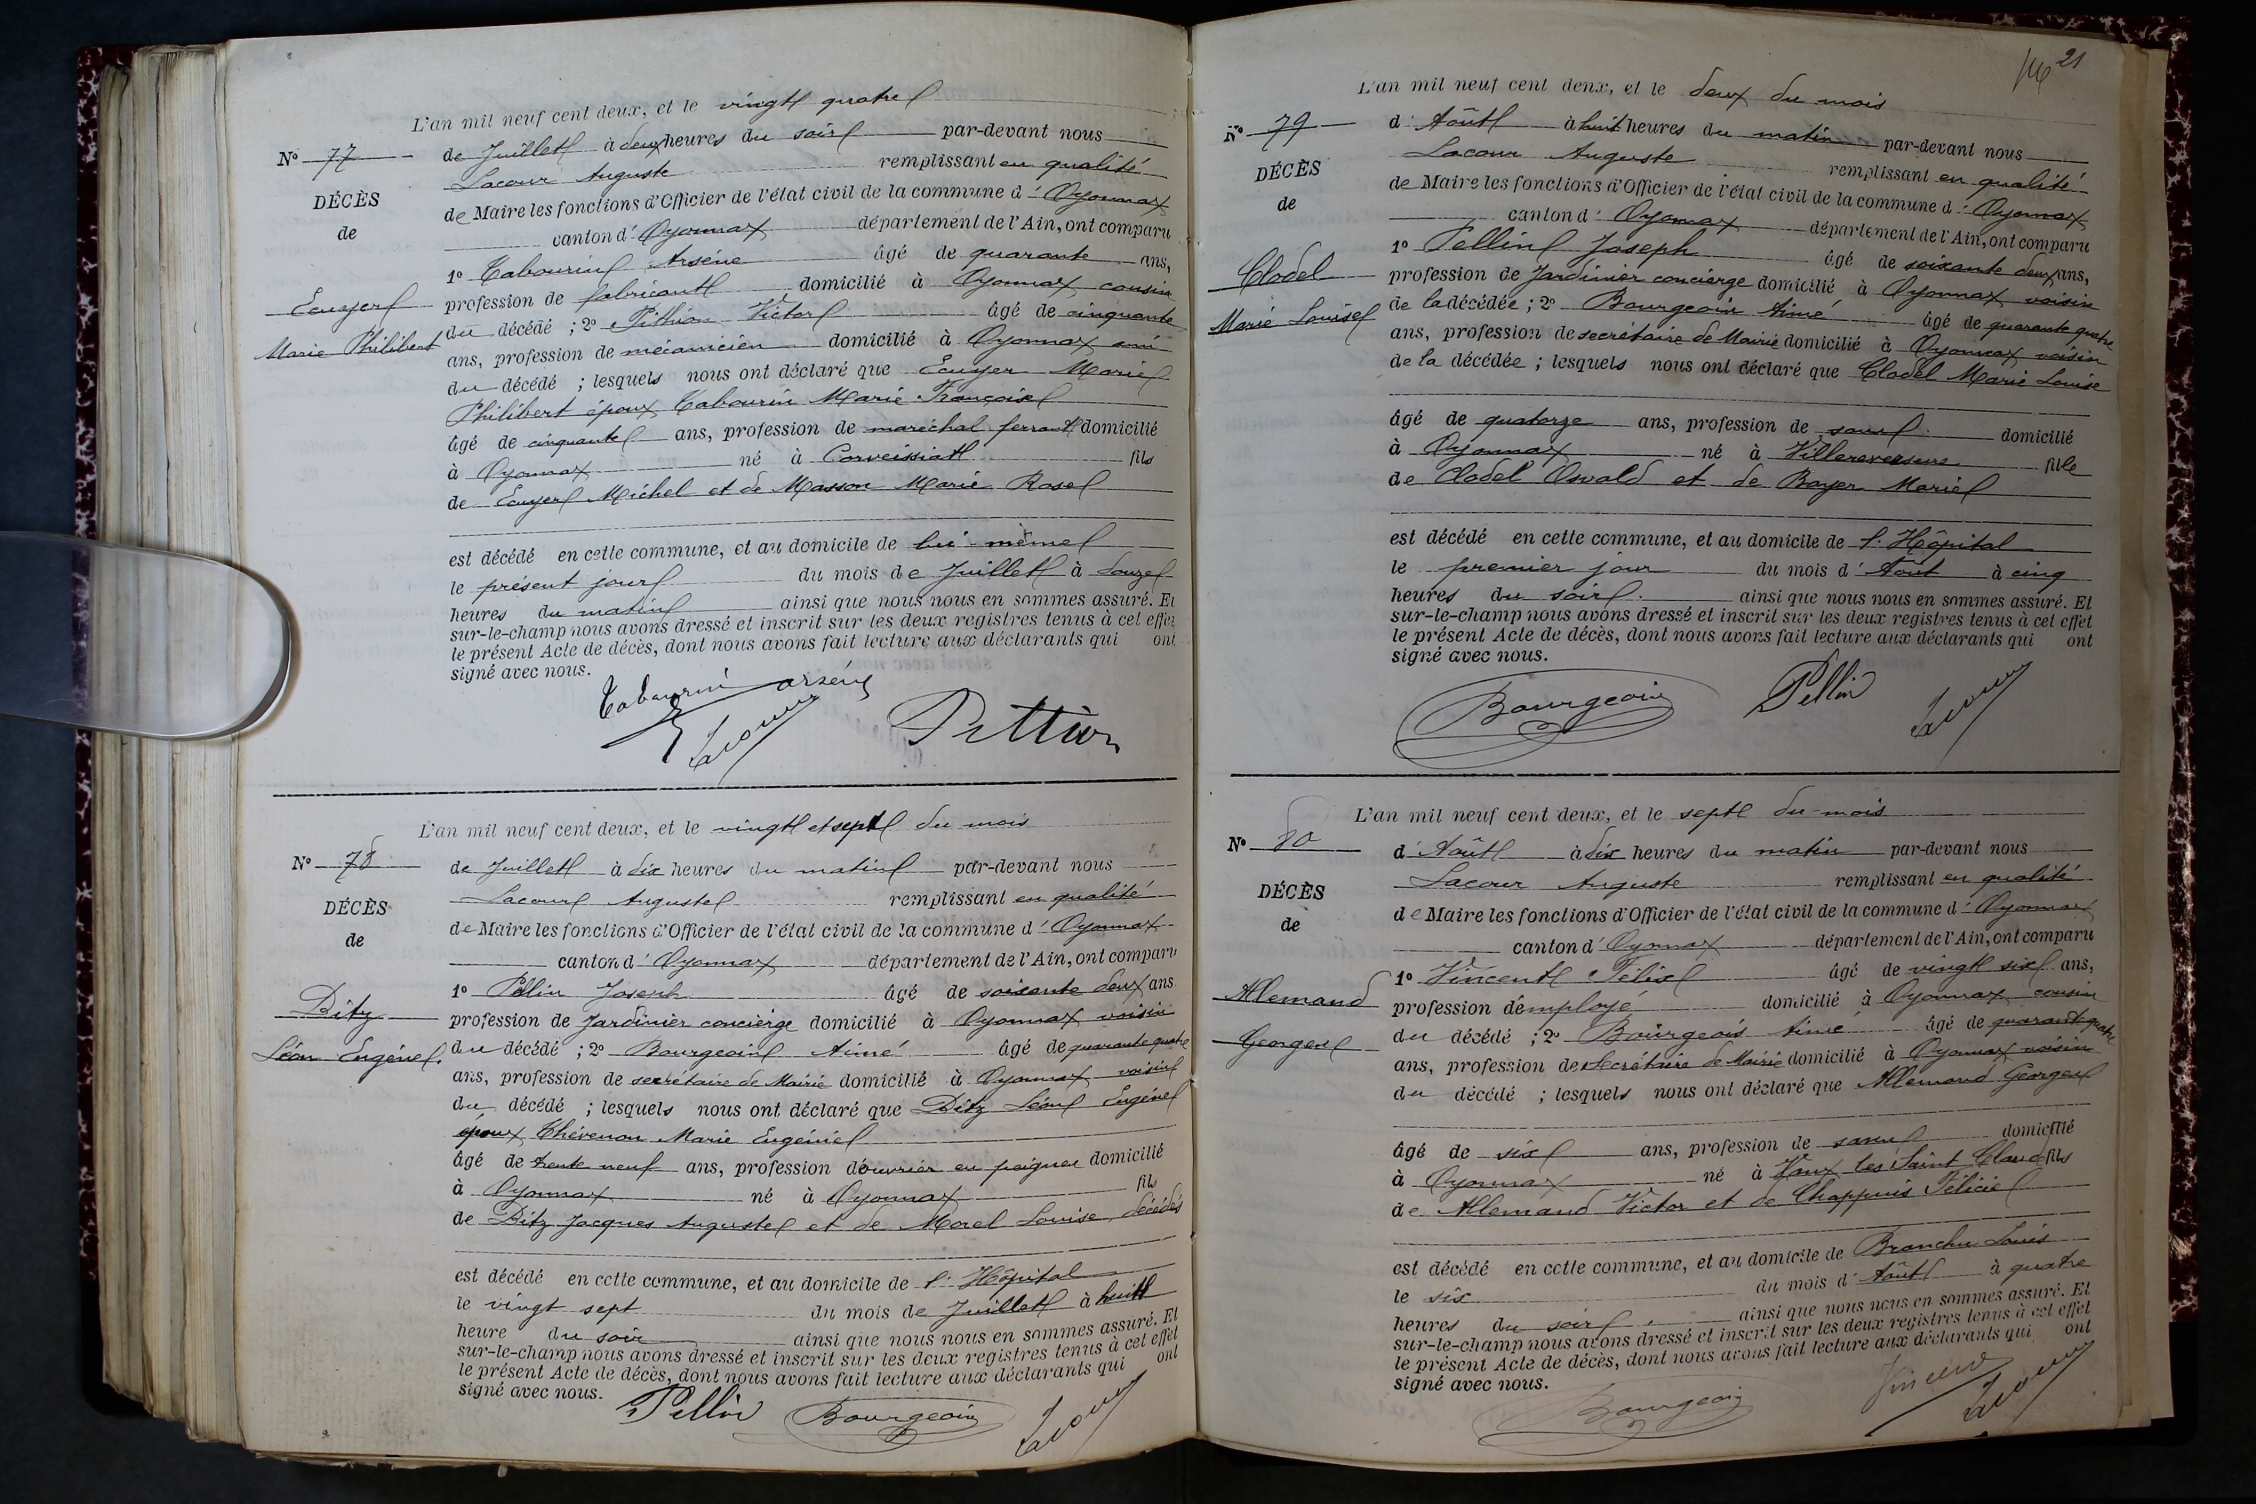 L'an mil neuf cent deux, et le vingt quatre
N° 77
de Juillet à deux heures du soir par-devant nous
Lacour Auguste remplissant en qualité
DÉCÈS
de Maire les fonctions d'Officier de l'état civil de la commune d'Oyonnax
de
canton d'Oyonnax département de l'Ain, ont comparu
1° Tabourin Arsène âgé de quarante ans,
Ecuyer
profession de fabricant domicilié à Oyonnax cousin
du décédé ; 2° Pithion Victor âgé de cinquante
Marie Philibert
ans, profession de mécanicien domicilié à Oyonnax ami
du décédé ; lesquels nous ont déclaré que Ecuyer Marie
Philibert époux Tabourin Marie Françoise
âgé de cinquante ans, profession de maréchal ferrant domicilié
à Oyonnax né à Corveissiat fils
de Ecuyer Michel et de Masson Marie Rose
est décédé en cette commune, et au domicile de lui-même
le présent jour du mois de Juillet à douze
heures du matin ainsi que nous nous en sommes assuré. Et
sur-le-champ nous avons dressé et inscrit sur les deux registres tenus à cet effet
le présent Acte de décès, dont nous avons fait lecture aux déclarants qui ont
signé avec nous.
Tabourin arsène
Lacour
Pittion
L'an mil neuf cent deux, et le vingt et sept du mois
N° 78
de Juillet à dix heures du matin par-devant nous
Lacour Auguste remplissant en qualité
DÉCÈS
de Maire les fonctions d'Officier de l'état civil de la commune d'Oyonnax
de
canton d'Oyonnax département de l'Ain, ont comparu
1° Pellin Joseph âgé de soixante deux ans
Ditz
profession de Jardinier concierge domicilié à Oyonnax voisin
Léon Eugène
du décédé ; 2° Bourgeois Aimé âgé de quarante quatre
ans, profession de secrétaire de Mairie domicilié à Oyonnax voisin
du décédé ; lesquels nous ont déclaré que Ditz Léon Eugène
époux Thévenon Marie Eugénie
âgé de trente neuf ans, profession d'ouvrier en peignes domicilié
à Oyonnax né à Oyonnax fils
de Ditz Jacques Auguste et de Morel Louise, décédés
est décédé en cette commune, et au domicile de l'Hôpital
le vingt sept du mois de Juillet à huit
heure du soir ainsi que nous nous en sommes assuré. Et
sur-le-champ nous avons dressé et inscrit sur les deux registres tenus à cet effet
le présent Acte de décès, dont nous avons fait lecture aux déclarants qui ont
signé avec nous.
Pellin Bourgeois Lacour
21
L'an mil neuf cent deux, et le deux du mois
N° 79
d'Août à huit heures du matin par-devant nous
Lacour Auguste remplissant en qualité
DÉCÈS
de Maire les fonctions d'Officier de l'état civil de la commune d'Oyonnax
de
canton d'Oyonnax département de l'Ain, ont comparu
1° Pellin Joseph âgé de soixante deux ans,
Clodel
profession de Jardinier concierge domicilié à Oyonnax voisin
Marie Louise
de la décédée ; 2° Bourgeois Aimé âgé de quarante quatre
ans, profession de secrétaire de Mairie domicilié à Oyonnax voisin
de la décédée ; lesquels nous ont déclaré que Clodel Marie Louise
âgé de quatorze ans, profession de sans domicilié
à Oyonnax né à Villereversure fille
de Clodel Oswald et de Boyer Marie
est décédé en cette commune, et au domicile de l'Hôpital
le premier jour du mois d'Août à cinq
heures du soir ainsi que nous nous en sommes assuré. Et
sur-le-champ nous avons dressé et inscrit sur les deux registres tenus à cet effet
le présent Acte de décès, dont nous avons fait lecture aux déclarants qui ont
signé avec nous.
Bourgeois Pellin Lacour
L'an mil neuf cent deux, et le sept du mois
N° 80
d'Août à dix heures du matin par-devant nous
Lacour Auguste remplissant en qualité
DÉCÈS
de Maire les fonctions d'Officier de l'état civil de la commune d'Oyonnax
de
canton d'Oyonnax département de l'Ain, ont comparu
1° Vincent Félix âgé de vingt six ans,
Allemand
profession d'employé domicilié à Oyonnax cousin
Georges
du décédé ; 2° Bourgeois Aimé âgé de quarante quatre
ans, profession de secrétaire de Mairie domicilié à Oyonnax voisin
du décédé ; lesquels nous ont déclaré que Allemand Georges
âgé de six ans, profession de sans domicilié
à Oyonnax né à Vaux les Saint Claude fils
de Allemand Victor et de Chappuis Félicie
est décédé en cette commune, et au domicile de Branchu Louis
le six du mois d'Août à quatre
heures du soir ainsi que nous nous en sommes assuré. Et
sur-le-champ nous avons dressé et inscrit sur les deux registres tenus à cet effet
le présent Acte de décès, dont nous avons fait lecture aux déclarants qui ont
signé avec nous.
Bourgeois Vincent Lacour